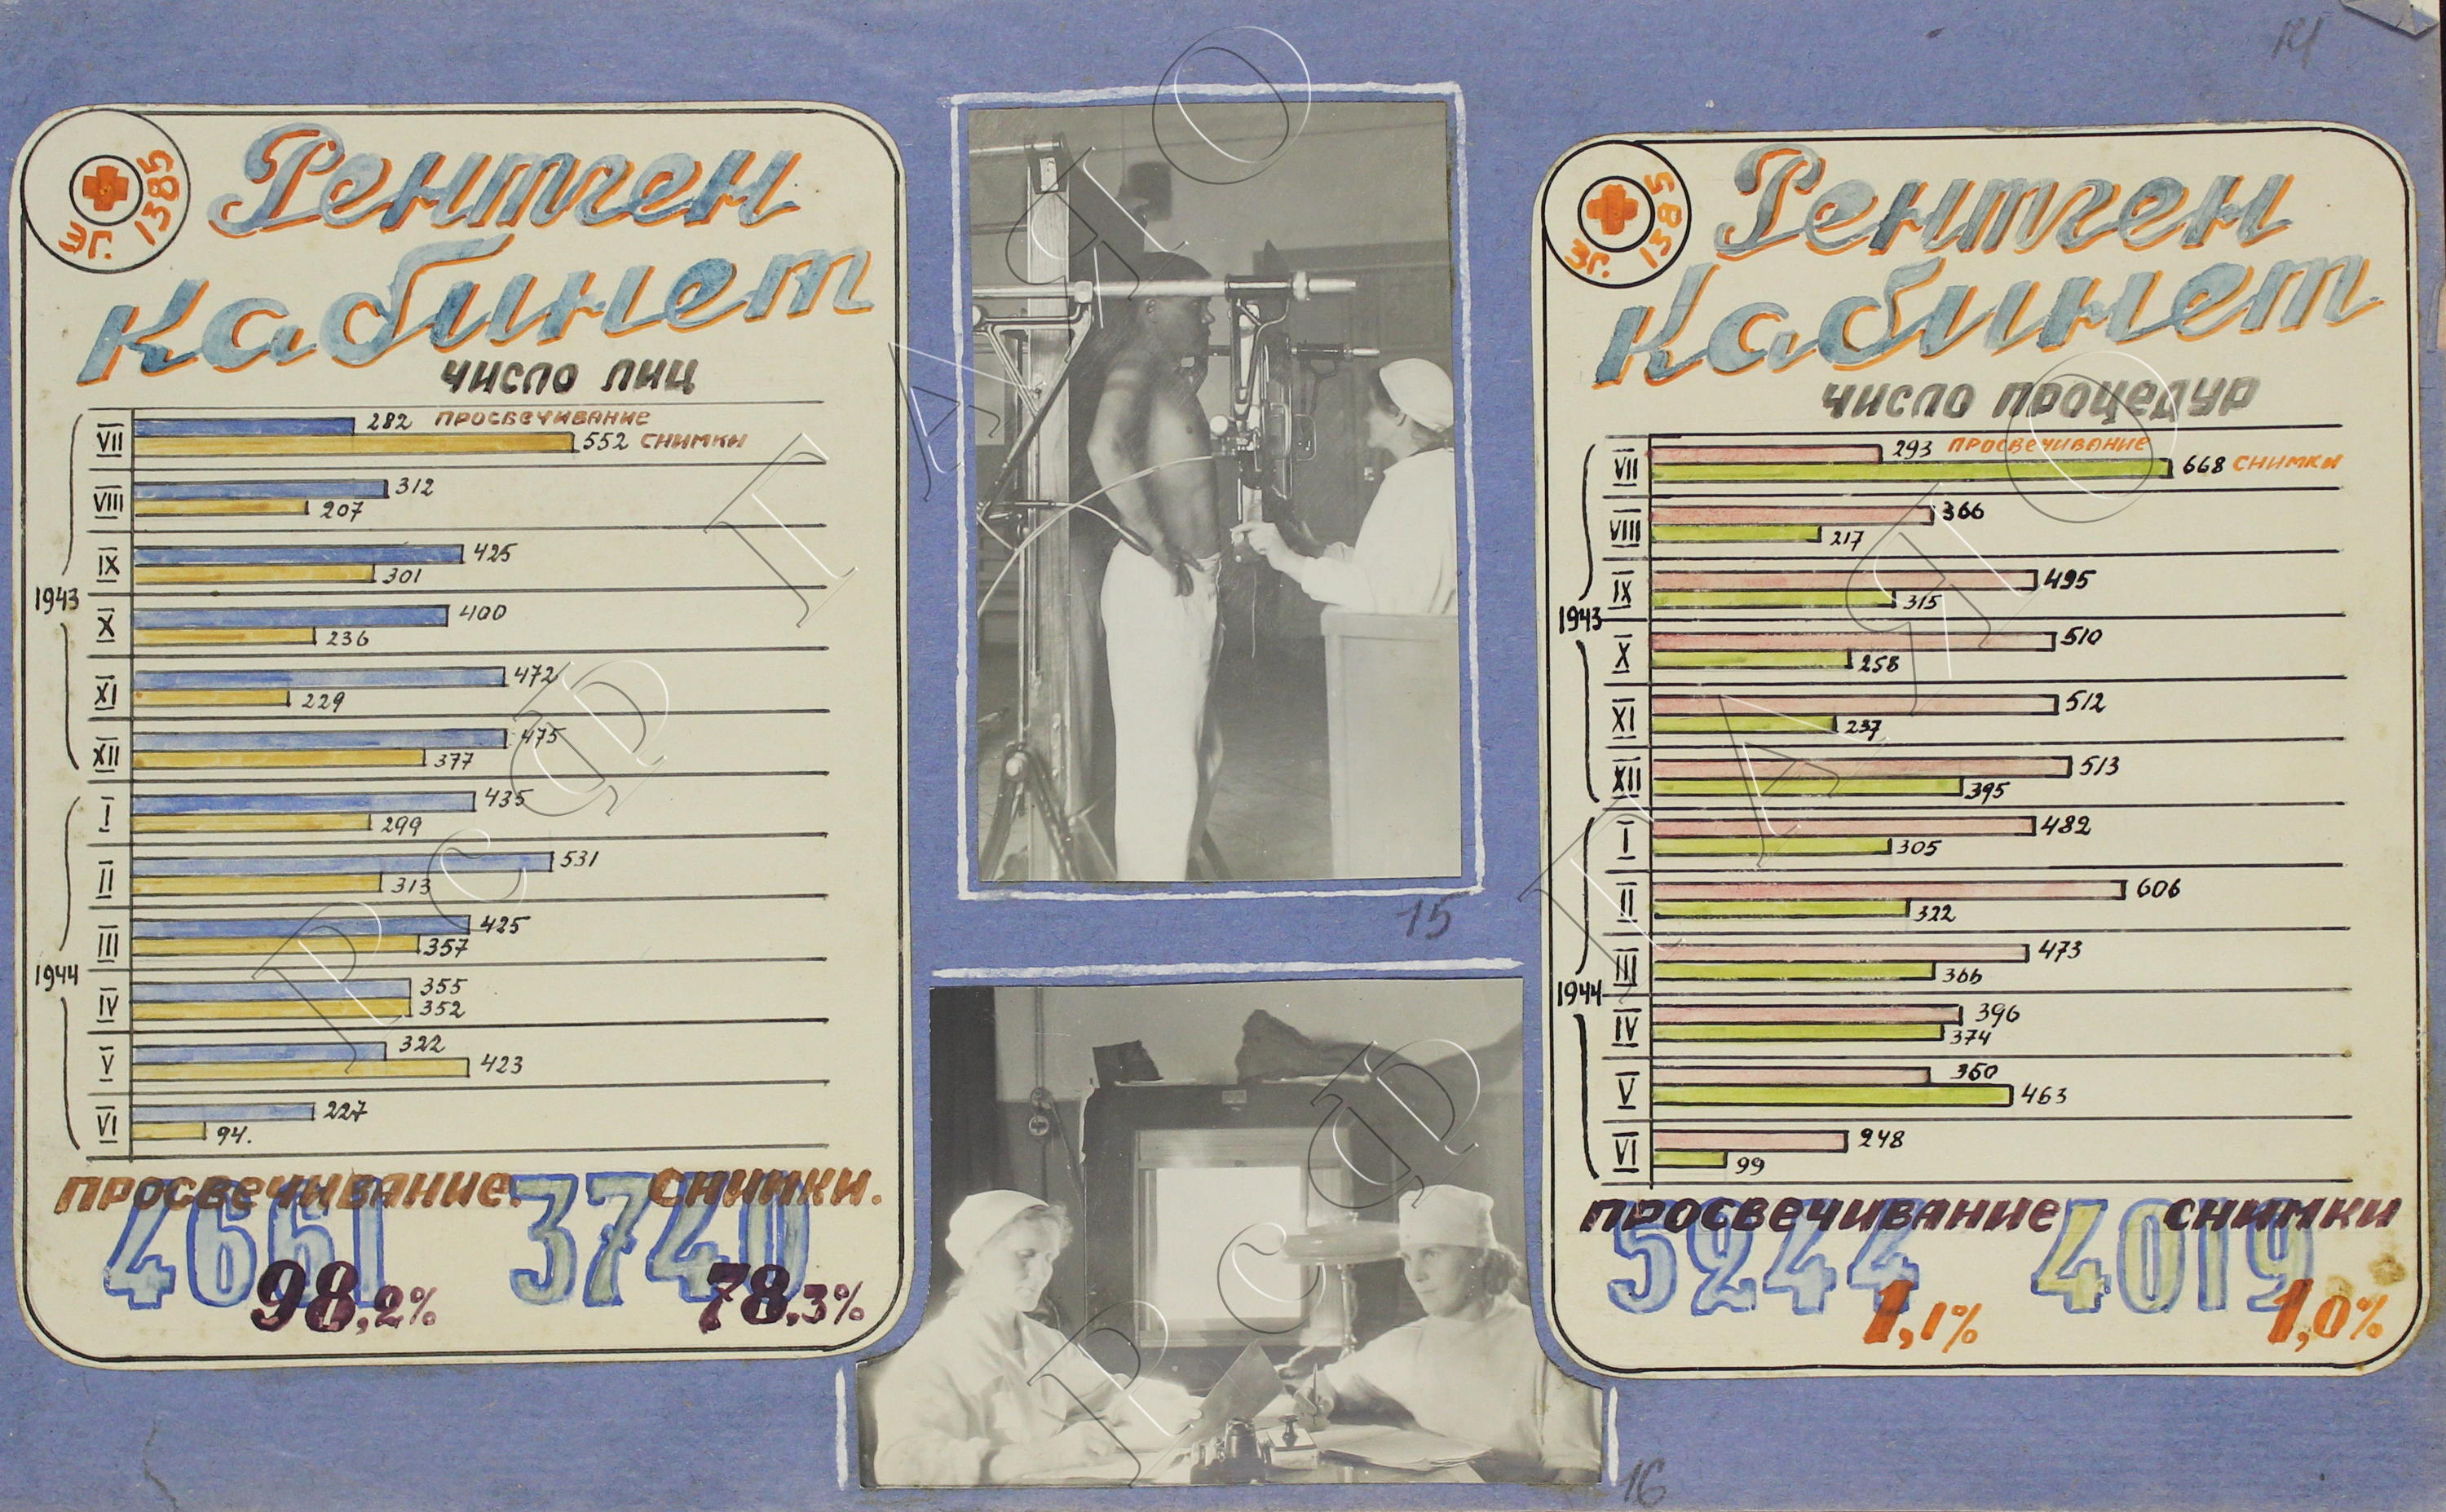 14
ЭГ. 1385
Рентген
Кабинет
число лиц
1943
VII 282 просвечивание
552 снимки
VIII 312
207
IX 425
301
X 400
236
XI 472
229
XII 475
377
1944
I 435
299
II 531
313
III 425
357
IV 355
352
V 322
423
VI 227
94.
просвечивание. снимки.
4661 3740
98,2% 78,3%
15
16
ЭГ. 1385
Рентген
Кабинет
число процедур
1943
VII 293 просвечивание
668 снимки
VIII 366
217
IX 495
315
X 510
258
XI 512
237
XII 513
395
1944
I 482
305
II 606
322
III 473
366
IV 396
374
V 350
463
VI 248
99
просвечивание снимки
5244 4019
1,1% 1,0%
РсФ ПАЯО
РсФ ПАЯО